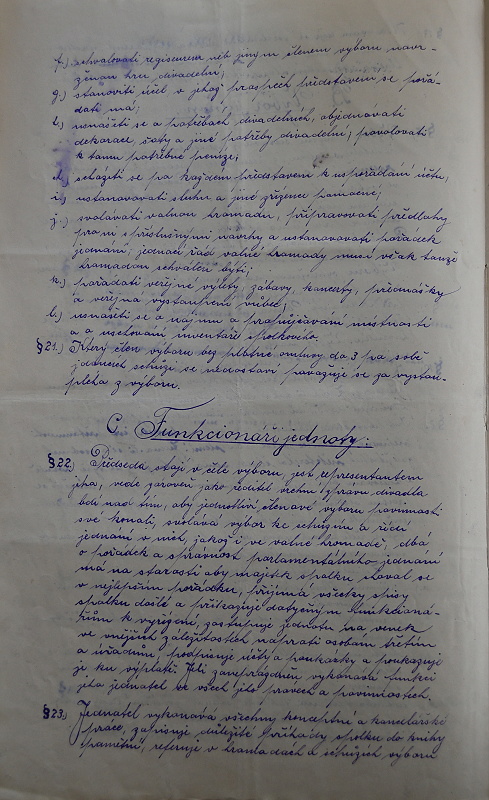 f.) schvalovati regisseurem neb jiným členem výboru navr-
ženou hru divadelní;
g.) stanoviti účel v jehož prospěch představení se pořá-
dati má;
h.) usnášeti se o potřebách divadelních, objednávati
dekorace, šaty a jiné potřeby divadelní; povolovati
k tomu potřebné peníze;
ch.) scházeti se po každém představení k uspořádání účtu,
i.) ustanovovati sluhu a jiné zřízence pomocné;
j.) svolávati valnou hromadu, připravovati předlohy
pro ni s příslušnými návrhy a ustanovovati pořádek
jednání, jednací řád valné hromady musí však touže
hromadou schválen býti;
k.) pořádati veřejné výlety, zábavy, koncerty, přednášky
a veřejná vystoupení vůbec;
l.) usnášeti se o nájmu a propůjčování místností
a o uschování inventáře spolkového.
§ 21.) Který člen výboru bez platné omluvy do 3 po sobě
jdoucích schůzí se nedostaví považuje se za vystou-
plého z výboru.
C. Funkcionáři jednoty:
§ 22.) Předseda stojí v čele výboru, jest representantem
jeho, vede zároveň jako ředitel vrchní správu divadla
bdí nad tím, aby jednotliví členové výboru povinnosti
své konali, svolává výbor ke schůzím a řídí
jednání v nich, jakož i ve valné hromadě, dbá
o pořádek a správnost parlamentálního jednání
má na starosti aby majetek spolku choval se
v nejlepším pořádku, přijímá všecky spisy
spolku došlé a přikazuje dotyčným funkcioná-
řům k vyřízení, zastupuje jednotu na venek
ve vnějších záležitostech naproti osobám třetím
a úřadům, podpisuje účty a poukazky a poukazuje
je ku výplatě. Je-li zaneprázdněn vykonává funkci
jeho jednatel ve všech jeho právech a povinnostech.
§ 23.) Jednatel vykonává všechny konceptní a kancelářské
práce, zapisuje důležité příhody spolku do knihy
pamětní, referuje v hromadách a schůzích výboru